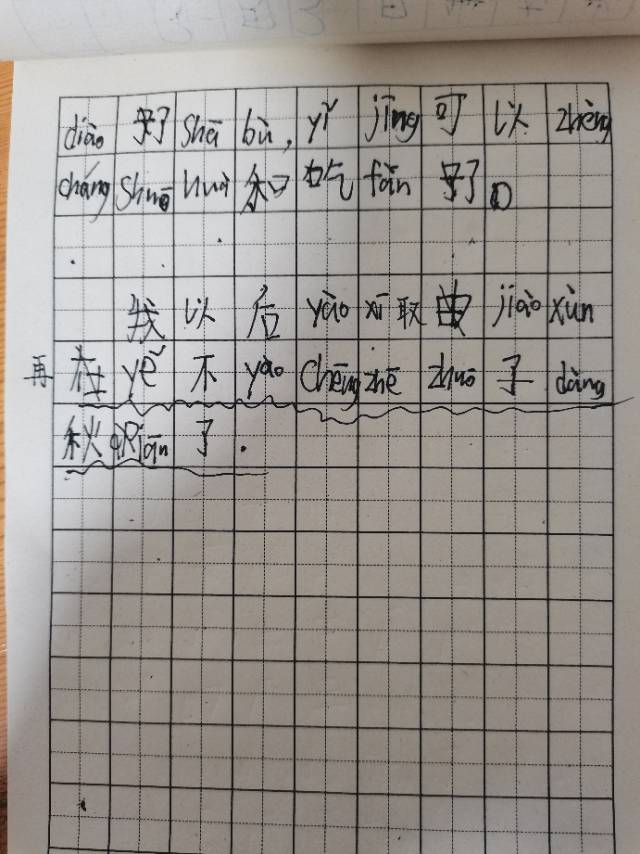 diào 好了 shā bù, yǐ jīng 可 以 zhèng
cháng shuō huà 和 吃 fàn 好了。
我 以 后 yào xī 取 由 jiào xùn
再 在 yě 不 yào chēng zhē zhuō 子 dàng
秋 qiān 了 .